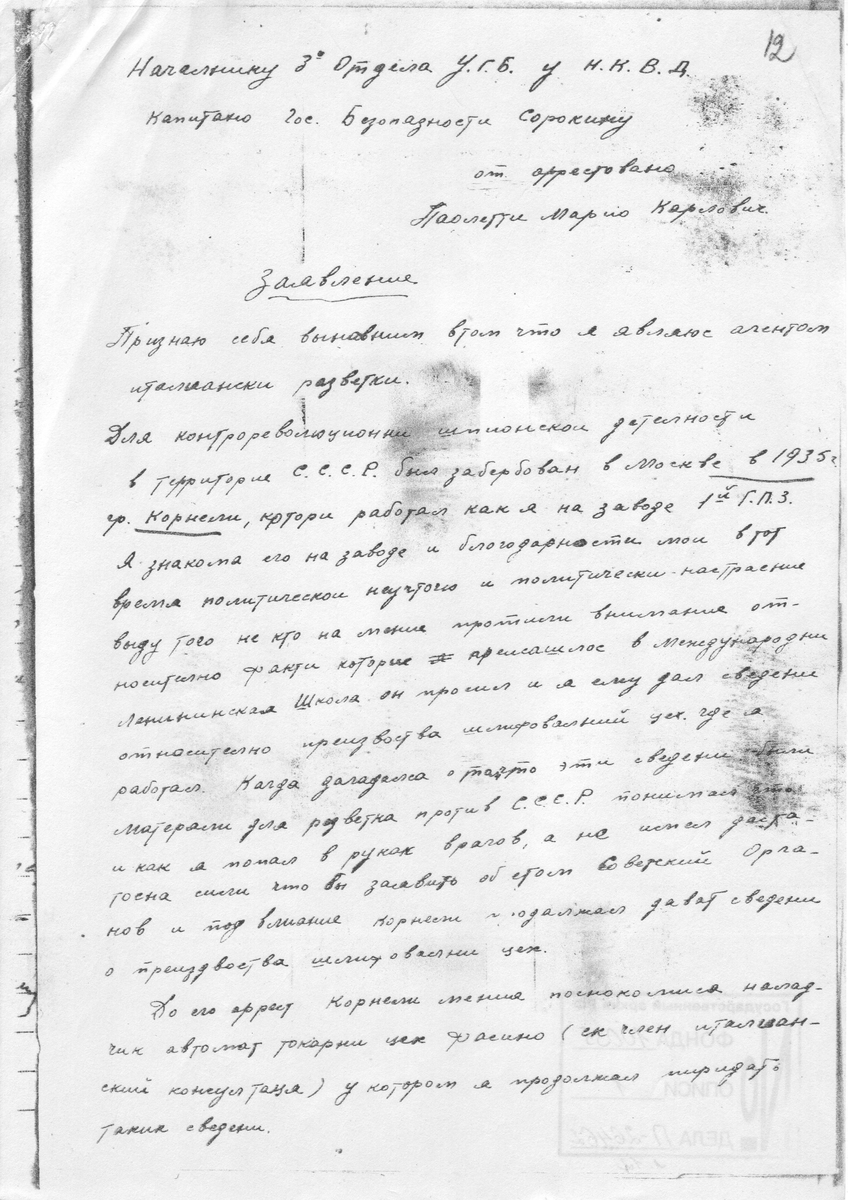 12
Начальнику 3º Отдела У.Г.Б. у Н.К.В.Д.
Капитано Гос. Безопазности Сорокину
от аррестовано
Паолетти Марио Карлович.
Заявление
Признаю себя выновним втом что я являюс агентом
италиански разветки.
Для контрореволюционни шпионской детелности
в территорие С.С.С.Р. был забербован в Москве в 1935 г.
гр. Корнели, котори работал как я на заводе 1й Г.П.З.
Я знакома его на заводе и благодарности мои в тот
время политической неучтою и политически настраение
выду того не кто на мение протили внимание от-
носително факти которые произашлос в Международни
Ленининская Школа он просил и я ему дал сведени
относително преизвоства шлифовалний цех. где я
работал. Кагда дагадалса отакто эти сведени были
матерали для редветка против С.С.С.Р. понимал что
и как я попал в руках врагов, а не имел даста-
тосна сили что бы заявить об етом Советский Орга-
нов и под влиание Корнели продалжал дават сведени
о преиздвоства шлифовални цех.
До его аррест Корнели мения поснокомиса налад-
чик автомат токарни цех Фасино (ек член италиан-
ский консултаця) у котором я продолжал пиридать
таких сведени.
Государственный архив РФ
ФОНДА
ОПИСИ 1
ДЕЛА